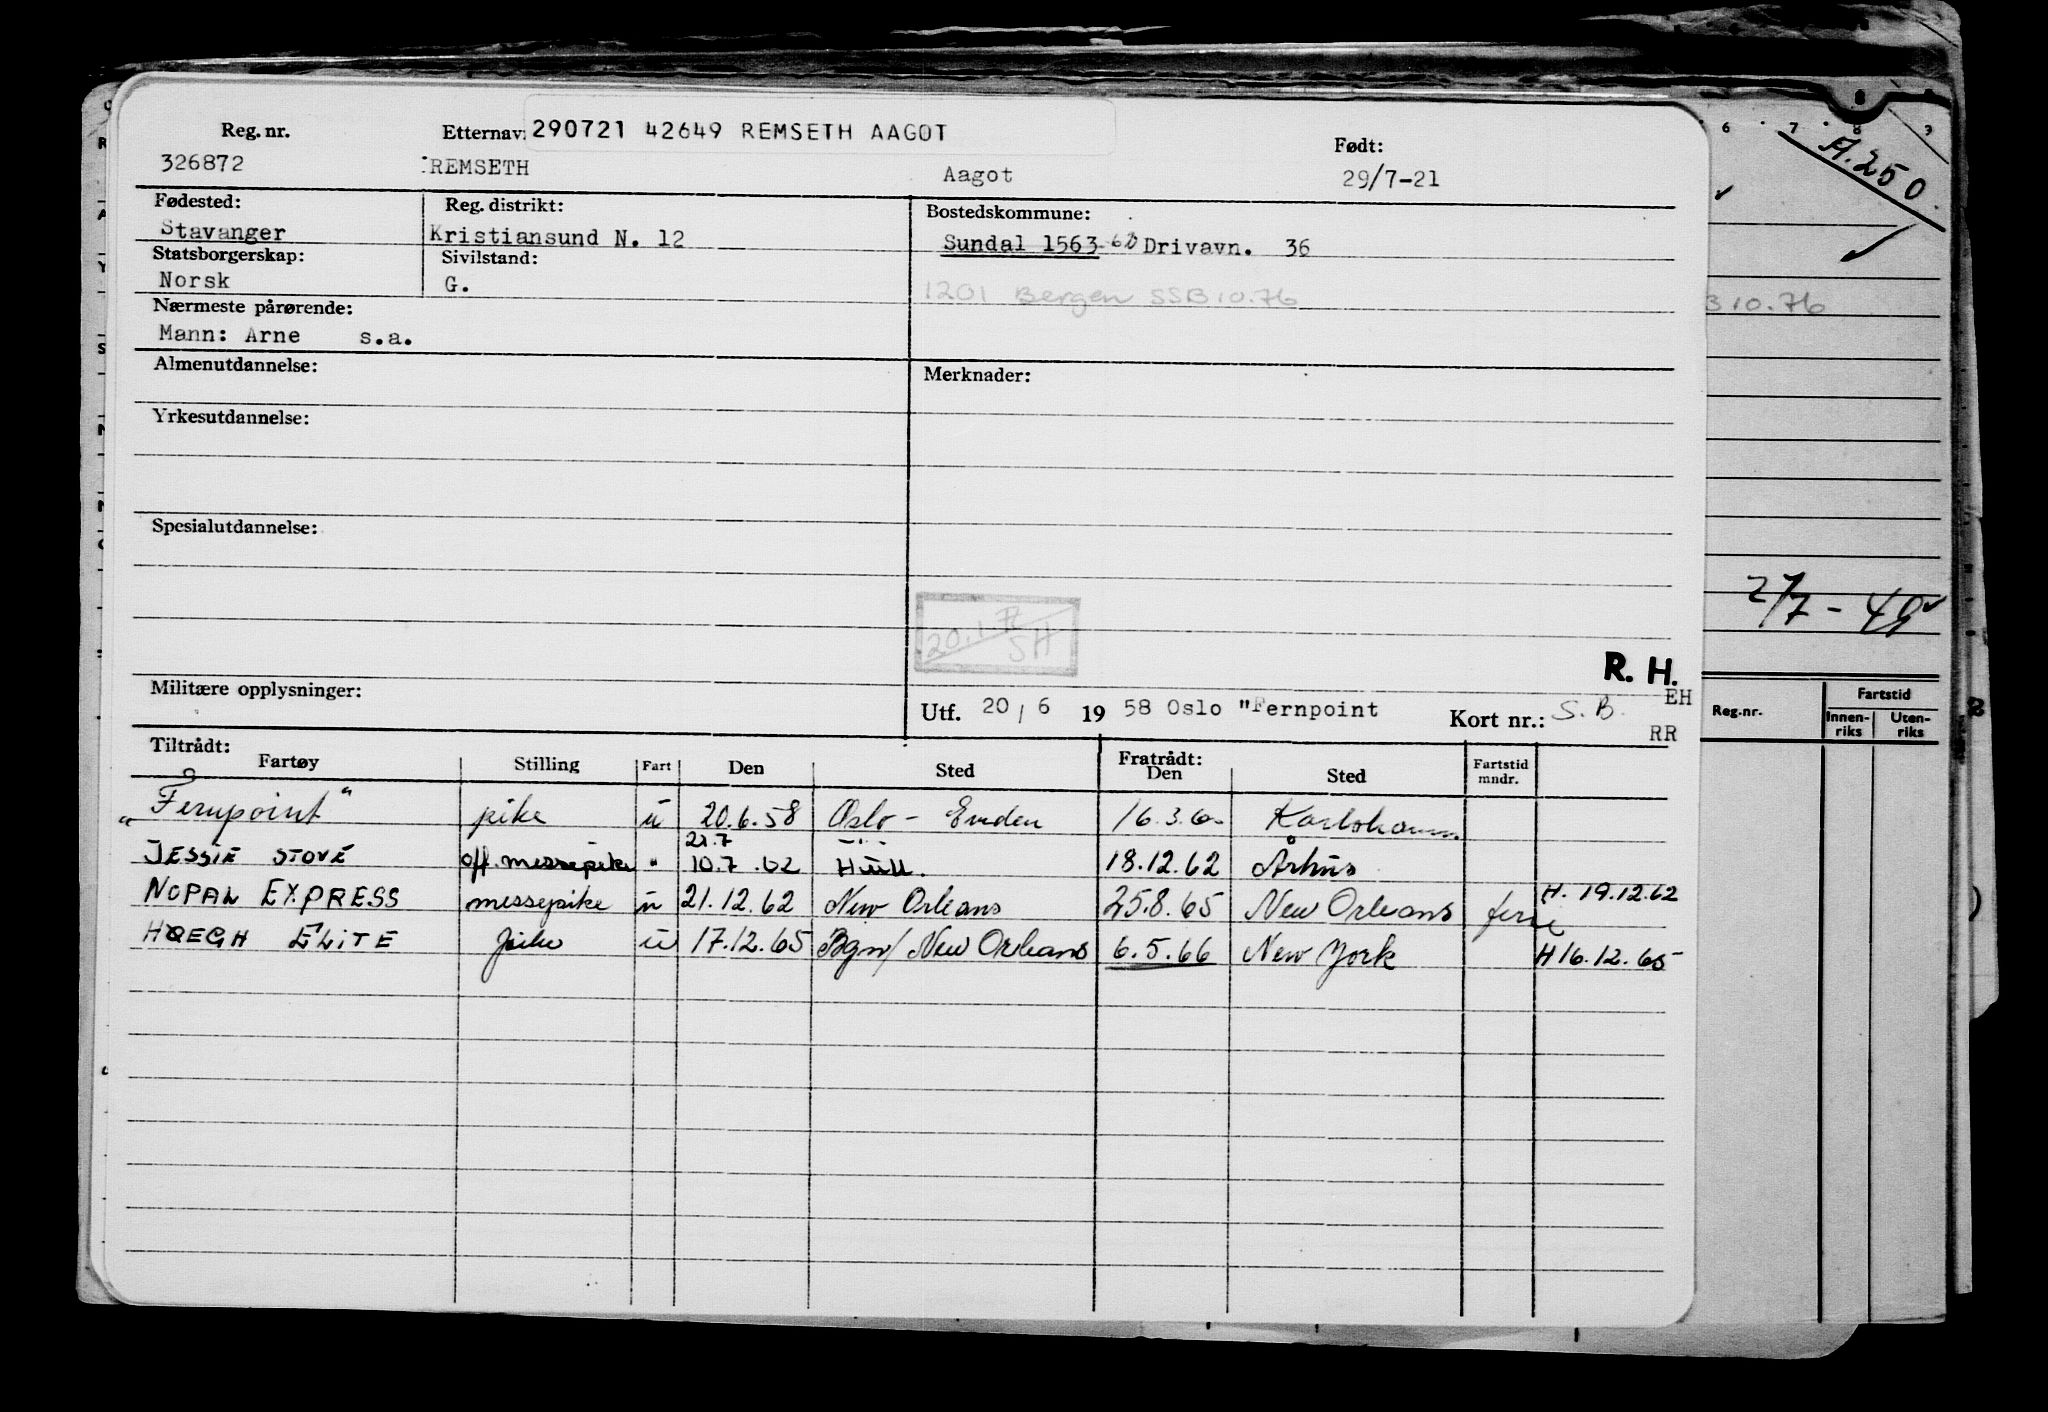 Reg. nr. Etternavn 290721 42649 REMSETH AAGOT Født:
326872 REMSETH Aagot 29/7-21
Fødested: Reg. distrikt: Bostedskommune:
Stavanger Kristiansund N. 12 Sundal 1563 Drivavn. 36
Statsborgerskap: Sivilstand:
Norsk G. 1201 Bergen SSB 10.76
Nærmeste pårørende:
Mann: Arne s.a.
Almenutdannelse: Merknader:
Yrkesutdannelse:
Spesialutdannelse:
SH
R. H.
Militære opplysninger: EH
Utf. 20/6 1958 Oslo "Fernpoint Kort nr.: S. B.
RR
Tiltrådt: Fratrådt:
Fartøy Stilling Fart Den Sted Den Sted Fartstid mndr.
"Fernpoint" pike u 20.6.58 Oslo - Emden 16.3.60 Karlshamn
JESSIE STOVE off. messepike " 10.7.62 Hull. 18.12.62 Århus
NOPAL EXPRESS messepike u 21.12.62 New Orleans 25.8.65 New Orleans ferie H. 19.12.62
HOEGH ELITE pike u 17.12.65 Bgn/ New Orleans 6.5.66 New York H 16.12.65
6 7 8 9
A.250
B 10.76
2/7 - 49
Reg.nr. Fartstid
Innen-riks Uten-riks